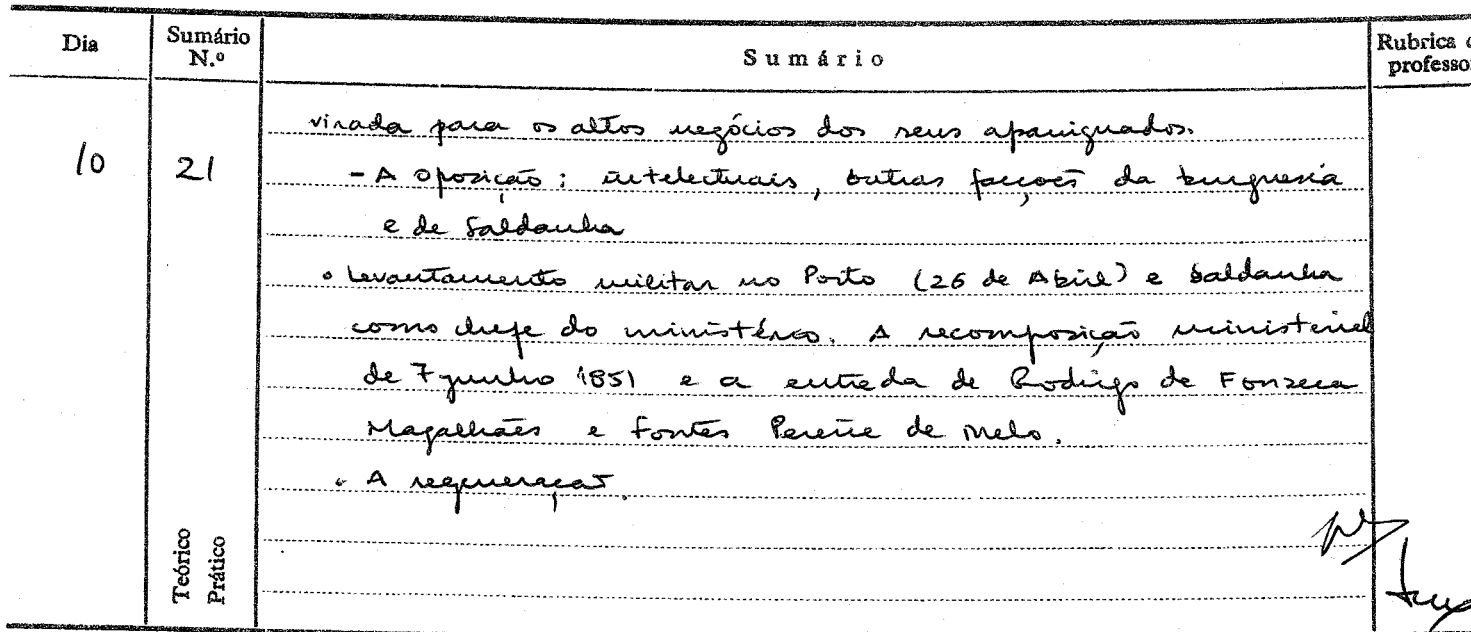 Dia Sumário N.º Sumário Rubrica d professor
virada para os altos negócios dos seus apaniguados.
10 21 - A oposição: intelectuais, outras facções da burguesia
e de Saldanha
• Levantamento militar no Porto (26 de Abril) e Saldanha
como chefe do ministério. A recomposição ministerial
de 7 junho 1851 e a entrada de Rodrigo de Fonseca
Magalhães e Fontes Pereira de Melo.
• A regeneração.
Teórico
Prático